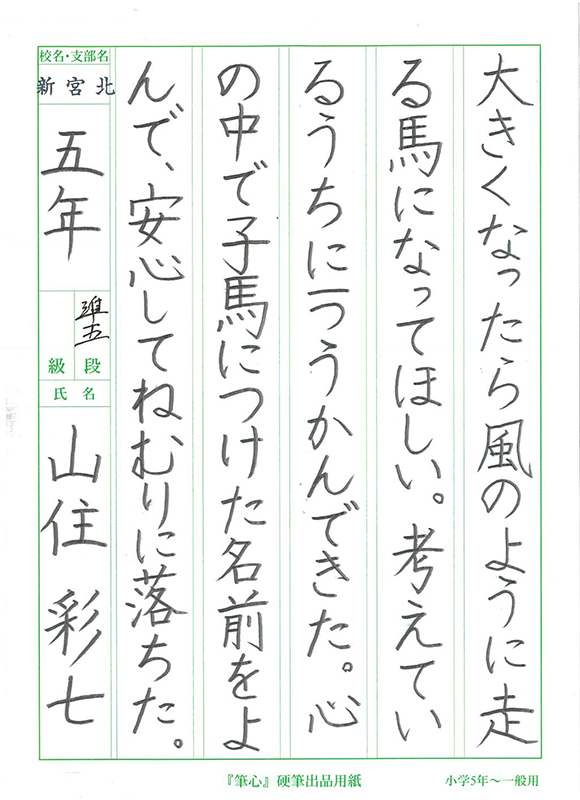 大きくなったら風のように走
る馬になってほしい。考えてい
るうちに一つうかんできた。心
の中で子馬につけた名前をよ
んで、安心してねむりに落ちた。
校名・支部名
新宮北
五年
準五
級 段
氏名
山住 彩七
『筆心』硬筆出品用紙
小学5年～一般用